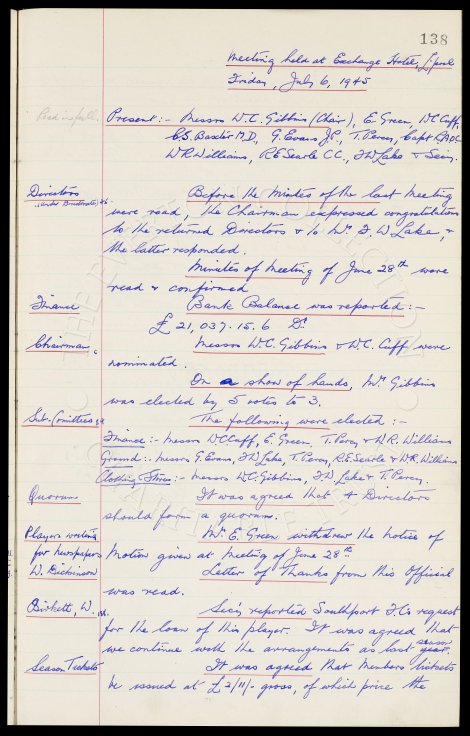 138
Meeting held at Exchange Hotel, L'pool
Friday, July 6, 1945
Read in full.
Present:- Messrs W.C. Gibbins (Chair), E. Green, W.C. Cuff,
C.S. Baxter M.D., G. Evans J.P., T. Percy, Capt
W.R. Williams, R.E. Searle C.C., F.W. Lake & Secy.
Directors
Before the Minutes of the last Meeting
were read, the Chairman expressed congratulations
to the returned Directors & to Mr. F. W. Lake, &
the latter responded.
Minutes of Meeting of June 28th were
read & confirmed
Finance
Bank Balance was reported:-
£21,037.15.6 Dr.
Chairman
Messrs W.C. Gibbins & W.C. Cuff were
nominated.
On a show of hands, Mr. Gibbins
was elected by 5 votes to 3.
Sub. Comittees
The following were elected:-
Finance:- Messrs W.C. Cuff, E. Green, T. Percy & W.R. Williams
Ground:- Messrs G. Evans, F.W. Lake, T. Percy, R.E. Searle & W.R. Williams
Messrs W.C. Gibbins, F.W. Lake & T. Percy.
Quorum
It was agreed that 4 Directors
should form a quorum.
Players writing
for newspapers
Mr. E. Green withdrew the notice of
Motion given at meeting of June 28th.
W. Dickinson
Letter of Thanks from this Official
was read.
Birkett, W.
Secy. reported Southport F.C's request
for the loan of this player. It was agreed that
we continue with the arrangements as last season.
Season Tickets
It was agreed that Members tickets
be issued at £2/11/- gross, of which price the